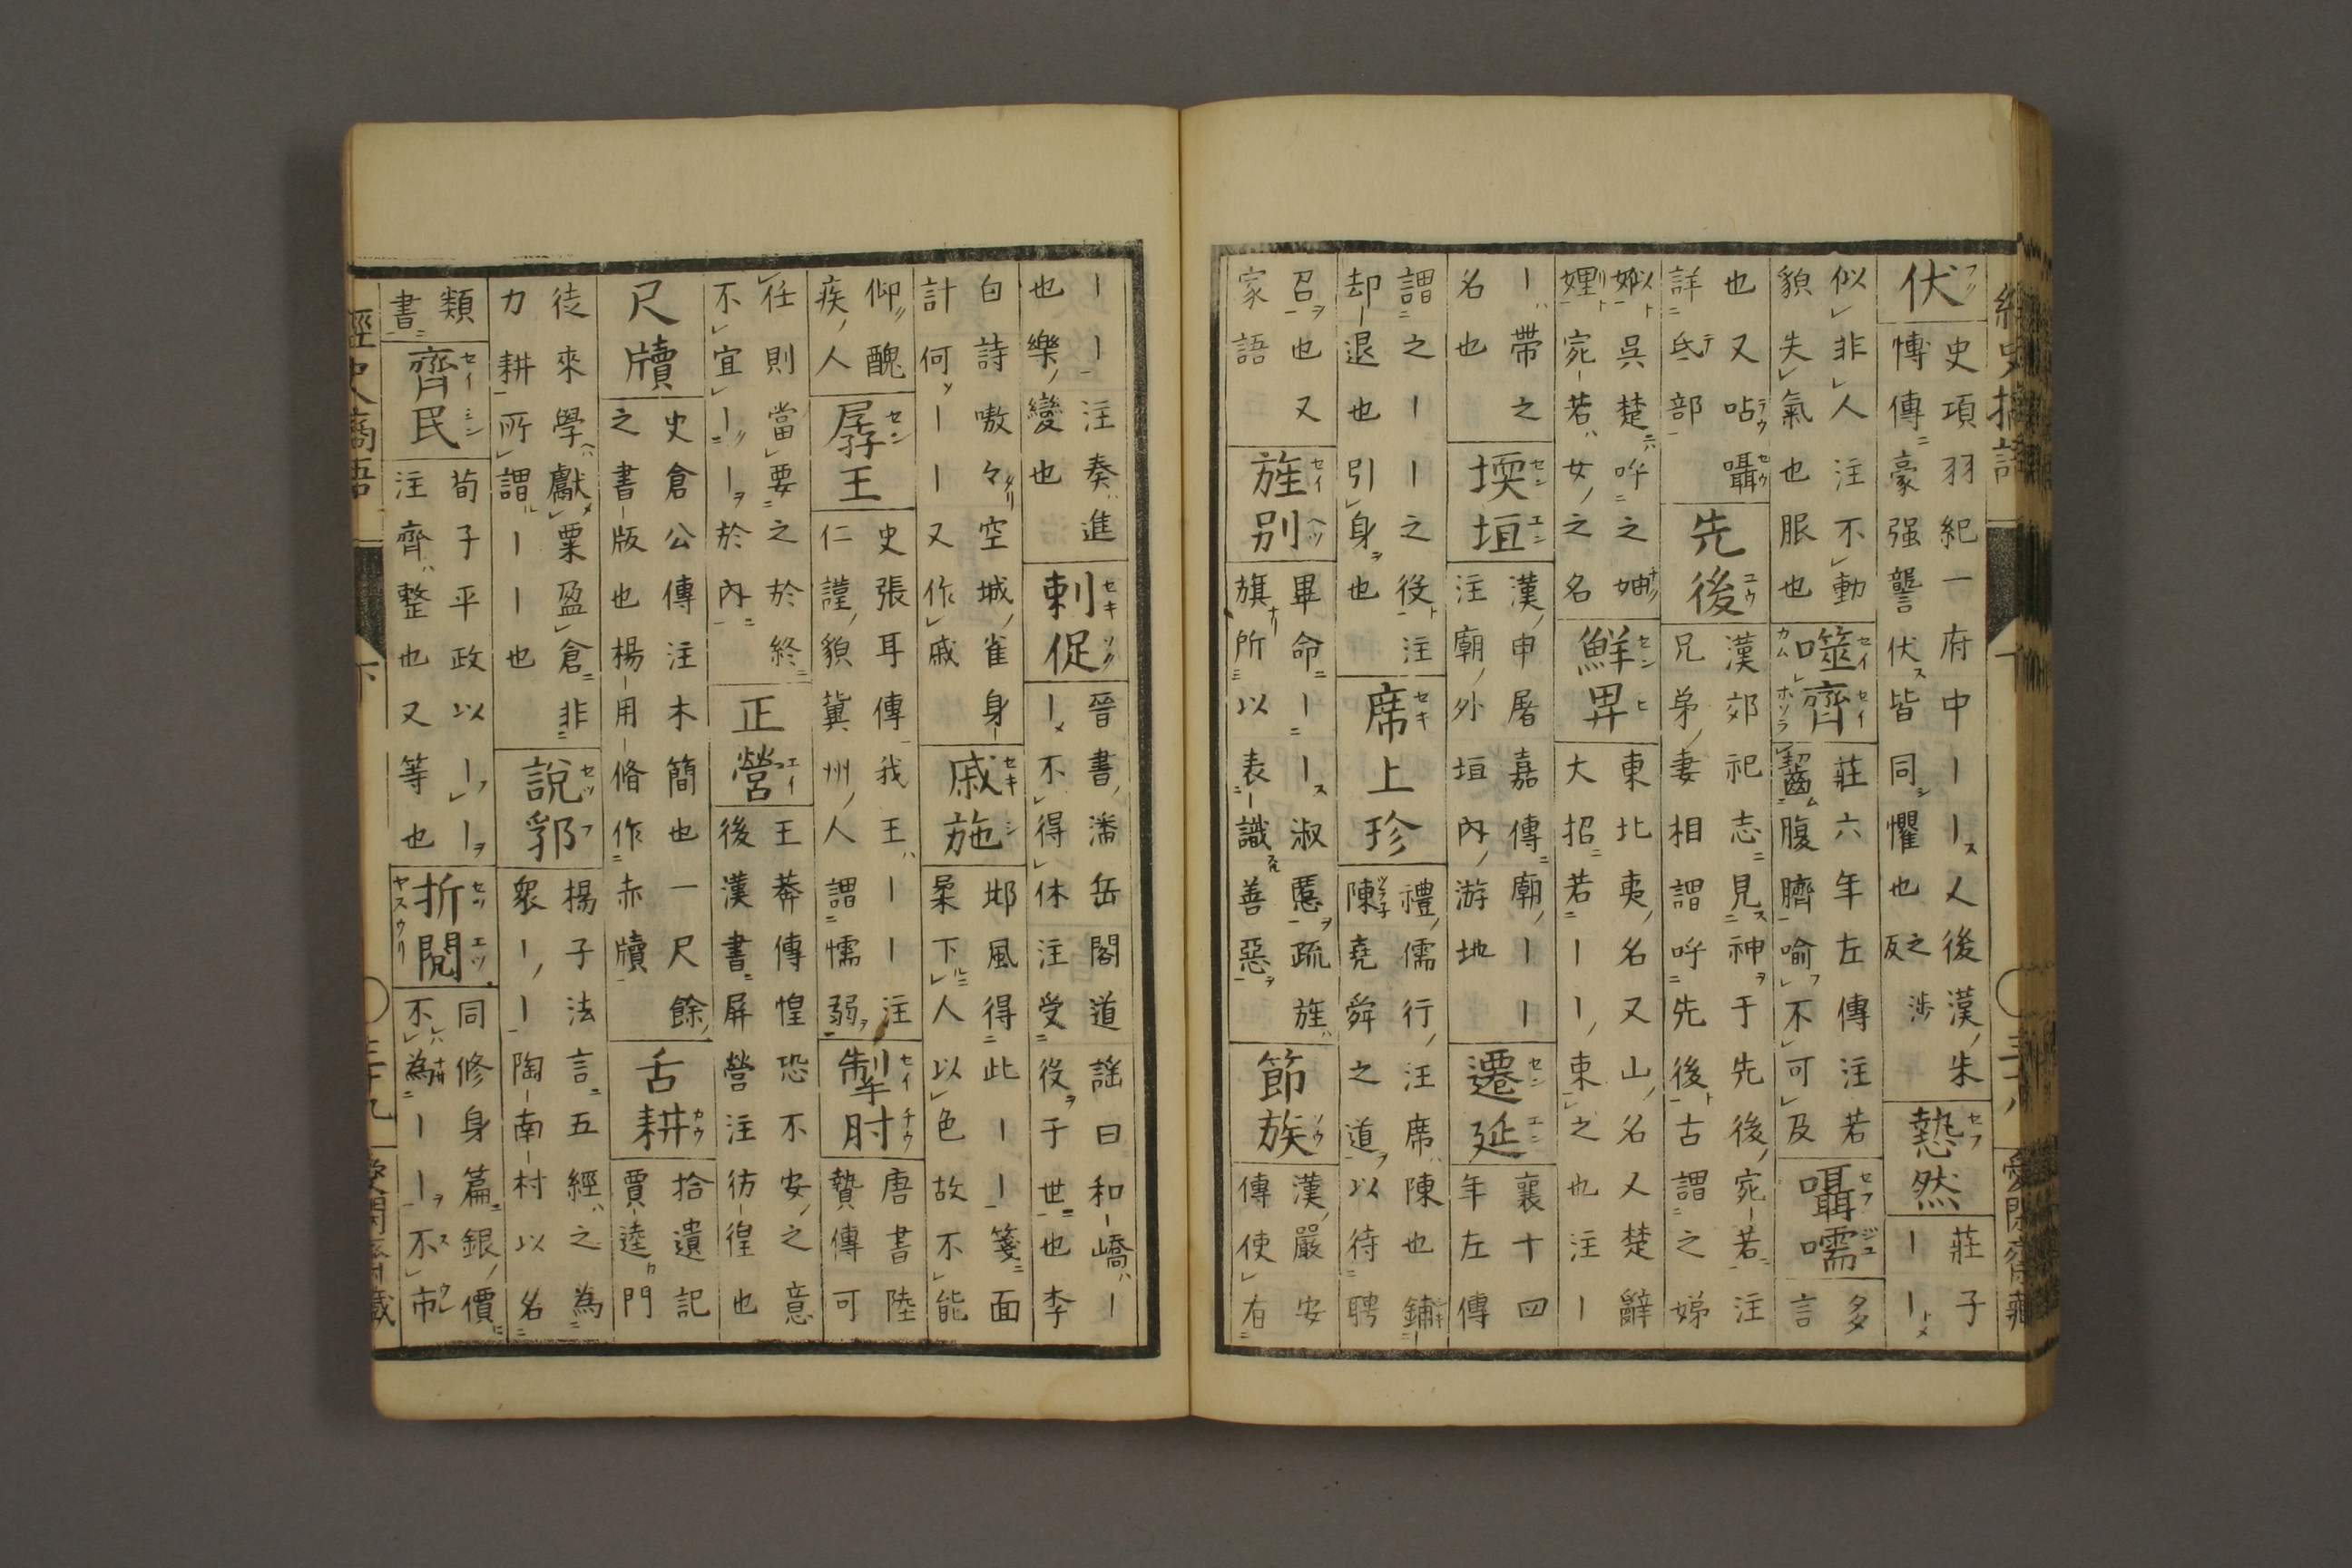 伏
史項羽紀一府中ーース人後漢朱
博傳ニ豪强讋伏ス皆同シ懼也之涉反
慹然
莊子ーートメ
似非人注不動
貌失氣也眼也
噬齊
莊六年左傳注若
齧腹臍喻不可及
囁嚅
多言
也又呫囁
詳ニ氐部
先後
漢郊祀志ニ見神ヲ于先後宛若注
兄弟妻相謂呼ニ先後ト古謂之娣
姒吳楚呼之妯
娌宛若女之名
鮮卑
東北夷名又山名又楚辭
大招ニ若ーー束之也注ー
ー帶之
名也
堧垣
漢申屠嘉傳ニ廟ーー
注廟外垣內游地
遷延
襄十四
年左傳
謂之ーー之役ト注
却退也引身ヲ也
席上珍
禮儒行注席陳也鋪
陳堯舜之道ヲ以待聘
召ヲ也又
家語
旌別
畢命ニーース淑慝ヲ疏旌ハ
旗所以表識善惡ヲ
節族
漢嚴安
傳使有
ーー注奏ハ進
也樂變也
刺促
晉書潘岳閣道謠曰和嶠ハー
ー不得休注受役ヲ于世也李
白詩嗷々空城雀身
計何ーー又作戚
戚施
邶風得此ーー箋ニ面
柔下人以色故不能
仰醜
疾人
孱王
史張耳傳我王ハーー注
仁謹貌冀州人謂懦弱ヲ
掣肘
唐書陸
贄傳可
任則當要之於終ニ
不宜ーーヲ於內ニ
正營
王莽傳惶恐不安之意
後漢書屏營注彷徨也
尺牘
史倉公傳注木簡也一尺餘
之書版也楊用脩作赤牘
舌耕
拾遺記
賈逵門
徒來學獻粟盈倉ニ非
力耕所謂ーー也
說郛
揚子法言ニ五經ハ之為
衆ーー陶南村以名
類
書
齊民
荀子平政以ーーヲ
注齊ハ整也又等也
折閱
同修身篇銀價
不為ーー不市
經史摘語
下
三十八
愛閒齋藏
經史摘語
下
三十九
愛閒齋藏